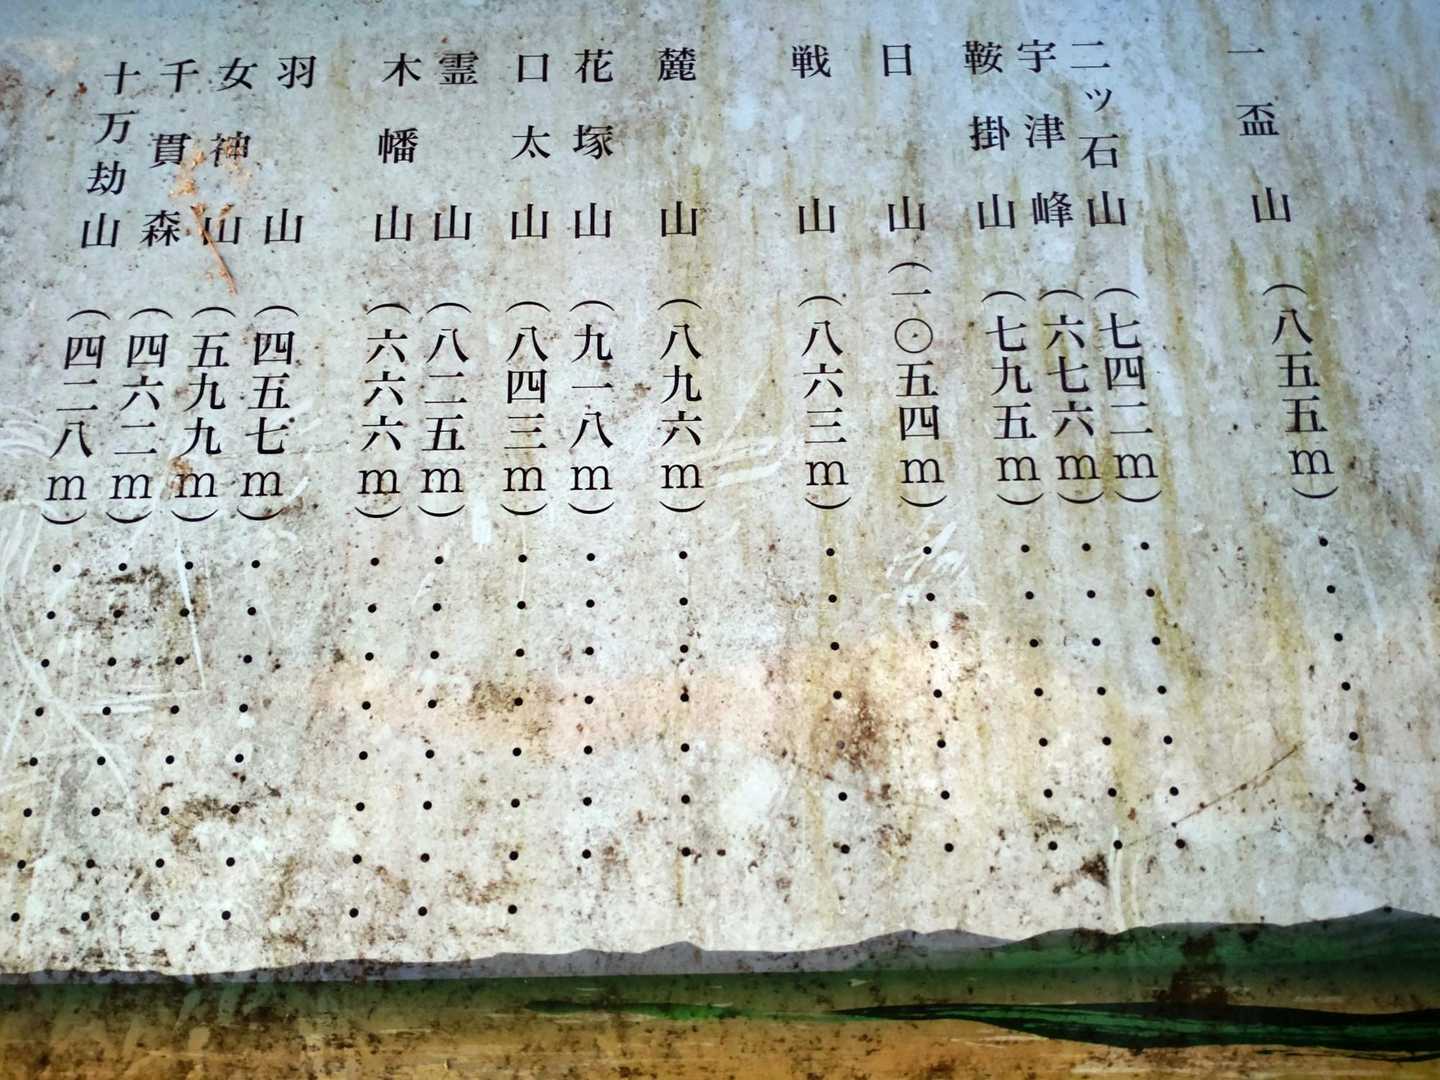 一盃山（八五五ｍ）
二ッ石山（七四二ｍ）
宇津峰（六七六ｍ）
鞍掛山（七九五ｍ）
日山（一〇五四ｍ）
戦山（八六三ｍ）
麓山（八九六ｍ）
花塚山（九一八ｍ）
口太山（八四三ｍ）
霊山（八二五ｍ）
木幡山（六六六ｍ）
羽山（四五七ｍ）
女神山（五九九ｍ）
千貫森（四六二ｍ）
十万劫山（四二八ｍ）